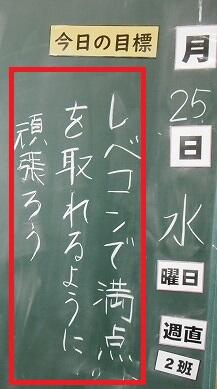 今日の目標
月
25
日
水
曜日
週直
2班
レベコンで満点
を取れるように
頑張ろう